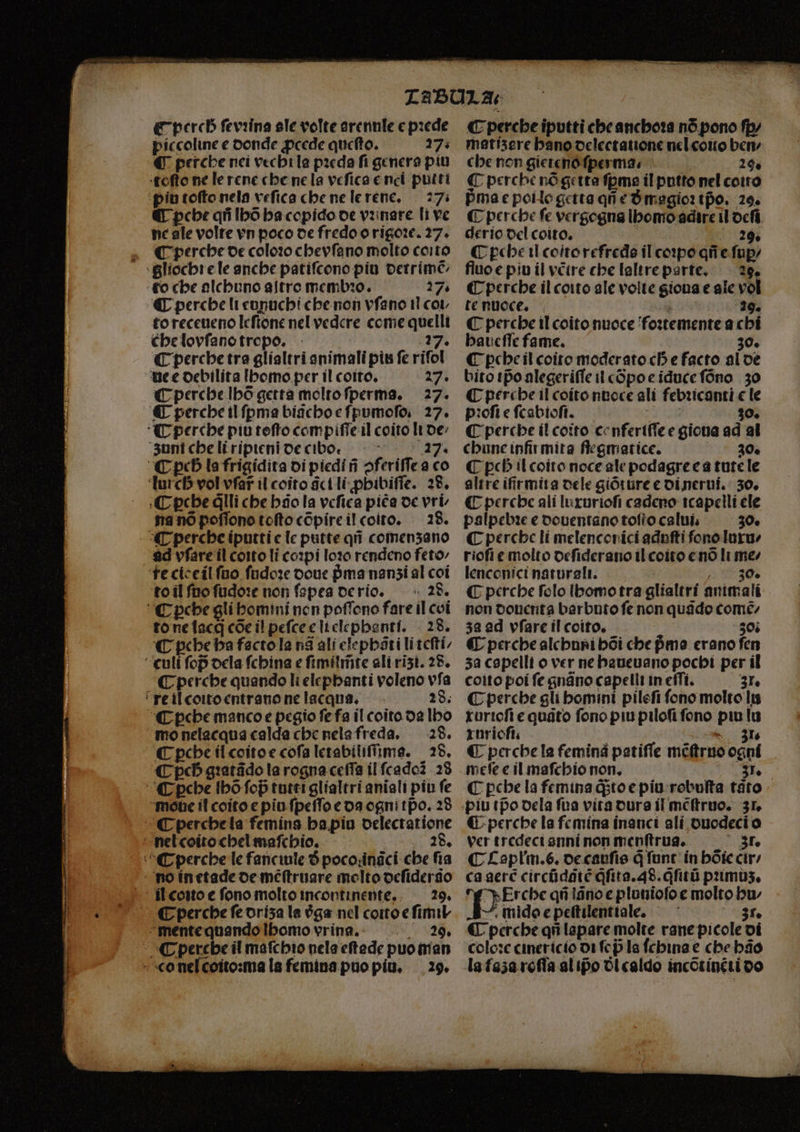 TABULA.
¶ perch̄ sevrina ale volte arenule e prede
piccoline e donde ꝓcede questo. 27.
¶ perche nei vechi la preda si genera piu
tosto ne le rene che ne la vesica e nei putti
piu tosto nela vesica che ne le rene. 27.
¶ pche qn̄ lhō ha copido de vrinare li ve
ne ale volte vn poco de fredo o rigore. 27.
¶ perche de coloro chevsano molto coito
gliochi e le anche patiscono piu detrimē/
to che alchuno altro membro. 27.
¶ perche li eunuchi che non vsano il coi/
to receueno lesione nel vedere come quelli
che lovsano tropo. 27.
¶ perche tra glialtri animali piu se risol
ue e debilita lhomo per il coito. 27.
¶ perche lhō getta molto sperma. 27.
¶ perche il spma biācho e spumoso. 27.
¶ perche piu tosto compisse il coito li de/
zuni che li ripieni de cibo. 27.
¶ pch̄ la frigidita di piedi n̄ ɔferisse a co
lui ch̄ vol vsar̄ il coito āci li ꝓhibisse. 28.
¶ pche q̄lli che hāo la vesica piēa de vri/
na nō possono tosto cōpire il coito. 28.
¶ perche iputti e le putte qn̄ comenzano
ad vsare il coito li corpi loro rendeno feto/
re cioe il suo sudore doue p̄ma nanzi al coi
to il suo sudore non sapea de rio. 28.
¶ pche gli homini non possono fare il coi
to ne lacq̄ cōe il pesce e li elephanti. 28.
¶ pche ha facto la nā ali elephāti li testi/
culi sop̄ dela schina e similm̄te ali rizi. 28.
¶ perche quando li elephanti voleno vsa
re il coito entrano ne lacqua. 28.
¶ pche manco e pegio se fa il coito da lho
mo nelacqua calda che nela freda. 28.
¶ pche il coito e cosa letabilissima. 28.
¶ pch̄ gratādo la rogna cessa il scador̄ 28
¶ pche lhō sop̄ tutti glialtri aniali piu se
moue il coito e piu spesso e da ogni tp̄o. 28
¶ perche la femina ha piu delectatione
nel coito chel maschio. 28.
¶ perche le fanciule d̄ poco ināci che sia
no in etade de mēstruare molto desiderāo
il coito e sono molto incontinente. 29.
¶ perche se driza la v̄ga nel coito e simil/
mente quando lhomo vrina. 29.
¶ perche il maschio nela estade puo man
co nel coito: ma la femina puo piu. 29.
¶ perche iputti che anchora nō pono sp/
matizere hano delectatione nel coito ben/
che non gieteno sperma. 29.
¶ perche nō getta spma il putto nel coito
p̄ma e poi lo getta qn̄ e d̄ magior tp̄o. 29.
¶ perche se vergogna lhomo adire il desi
derio del coito. 29.
¶ pche il coito refreda il corpo qn̄ e sup/
fluo e piu il vētre che laltre parte. 29.
¶ perche il coito ale volte gioua e ale vol
te nuoce. 29.
¶ perche il coito nuoce fortemente a chi
hauesse fame. 30.
¶ pche il coito moderato ch̄ e facto al de
bito tp̄o alegerisse il cōpo e iduce sōno 30
¶ perche il coito nuoce ali febricanti e le
prosi e scabiosi. 30.
¶ perche il coito conferisse e gioua ad al
chune infirmita flegmatice. 30.
¶ pch̄ il coito noce ale podagre e a tute le
altre ifirmita dele giōture e di nerui. 30.
¶ perche ali luxuriosi cadeno icapelli ele
palpebre e douentano tosto calui. 30.
¶ perche li melenconici adusti sono luxu/
riosi e molto desiderano il coito e nō li me/
lenconici naturali. 30.
¶ perche solo lhomo tra glialtri animali
non douenta barbuto se non quādo comē/
za ad vsare il coito. 30.
¶ perche alchuni hōi che p̄ma erano sen
za capelli o ver ne haueuano pochi per il
coito poi se gnāno capelli in essi. 31.
¶ perche gli homini pilesi sono molto lu
xuriosi e quāto sono piu pilosi sono piu lu
xuriosi. 31.
¶ perche la feminā patisse mēstruo ogni
mese e il maschio non. 31.
¶ pche la femina q̄sto e piu robusta tāto
piu tp̄o dela sua vita dura il mēstruo. 31.
¶ perche la femina inanci ali duodeci o
ver tredeci anni non menstrua. 31.
¶ Caplm̄. 6. de causis q̄ sunt in hōie cir/
ca aerē circūdātē q̄sita. 48. q̄sitū primuz.
Perche qn̄ lāno e pluuioso e molto hu/
mido e pestilentiale. 31.
¶ perche qn̄ lapare molte rane picole di
colore cinericio di sop̄ la schina e che hāo
la faza rossa al tp̄o dl caldo incōtinēti do